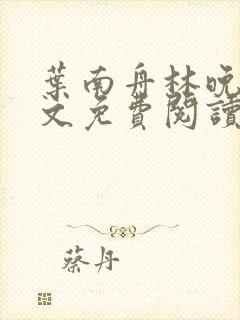 葉南舟林晚
文免費閱讀
蔡丹